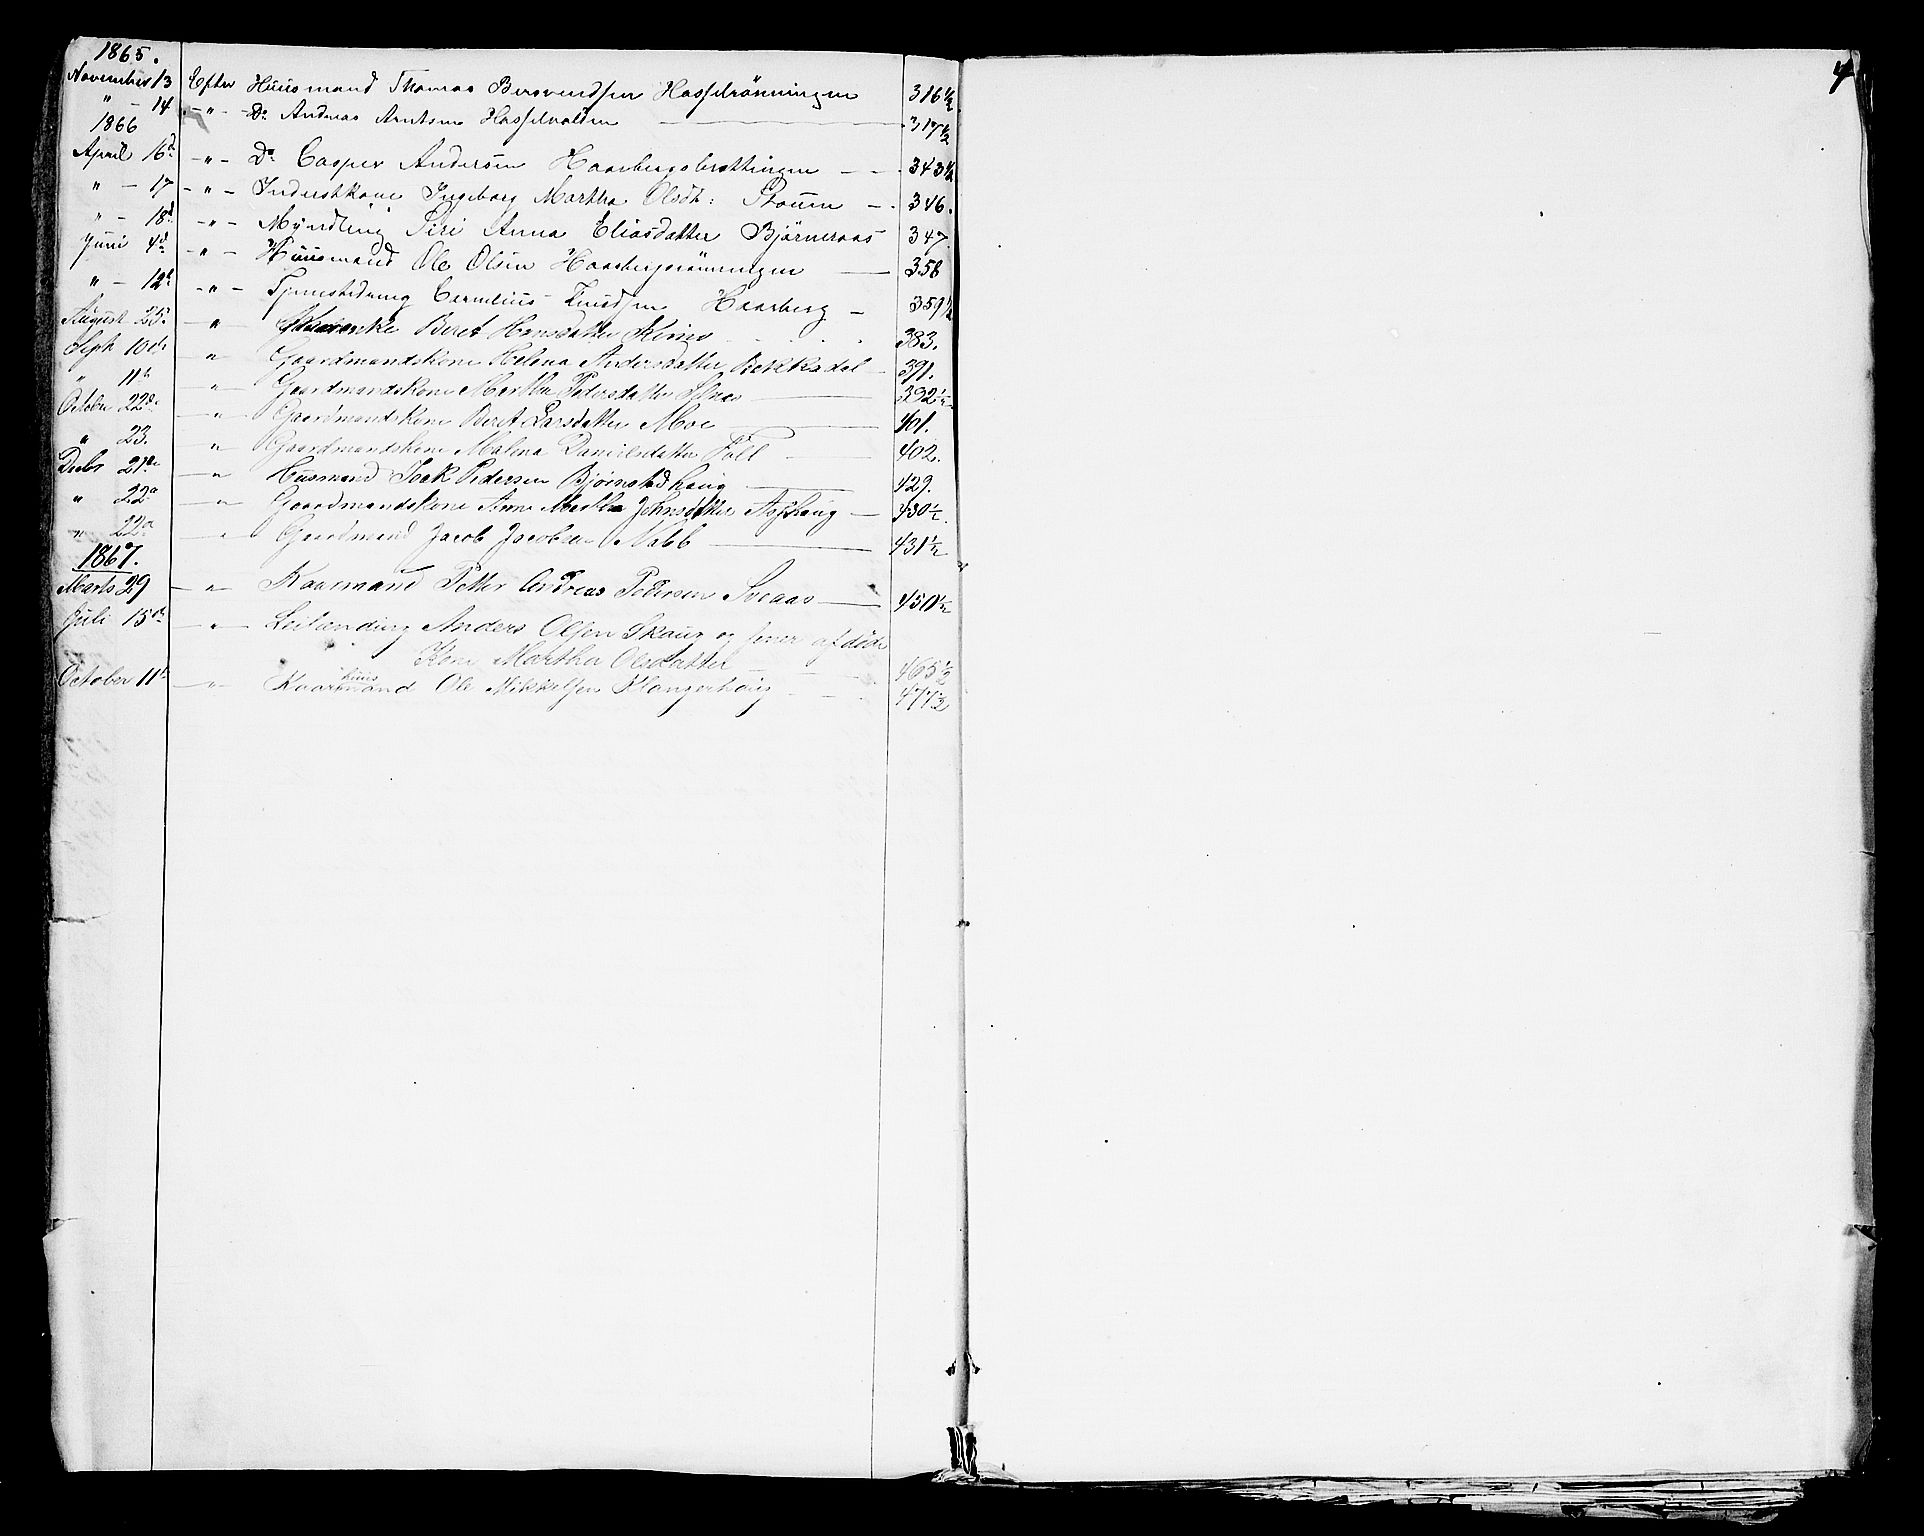 1865.
November 13 Efter Huusmand Thomas Bersvendsen Hasselrönningen 316 1/2
" - 14 - " - Do Andreas Arntsen Hasselvolden 317 1/2
1866
April 16d - " - Do Casper Andersen Haarbergsbrattingen 343 1/2
" - 17 - " - Inderstkone Ingeborg Martha Olsdt: Stoum - 346.
" - 18d - " - Myndling Siri Anna Eliasdatter Björneraas 347
Juni 4d - " - Huusmand Ole Olsen Haarbergsrönningen 358
" - 12t - " - Tjenestedreng Cornelius Knudsen Haarberg - 359 1/2
August 25 " Beret Hansdatter 383.
Septb 10de " Gaardmandskone Helena Andersdatter Bekkadal 391.
" 11t - " - Gaardmandskone Martha Pedersdatter 392 1/2
October 22d - " - Gaardmandskone Beret Larsdatter Moe 401.
" 23. " Gaardmandskone Malena Danielsdatter Föll 402.
Decbr 21de - " - Husmand Isak Pedersen Bjørnstadhaug 429.
" 22d - " - Gaardmandskone Anne Martha Johnsdatter Asphaug 430 1/2.
" 22d - " - Gaardmand Jacob Jacobsen Nabb 431 1/2
1867.
Marts 29 - " - Kaarmand Petter Andreas Pedersen Sveaas 450 1/2
Juli 15de - " - Leilænding Anders Olsen Skaug og før afdøde
Kone Martha Olsdatter 465 1/2
October 11te - " - Kaarmand Ole Mikkelsen Klangerhaug 477 1/2
huus
4